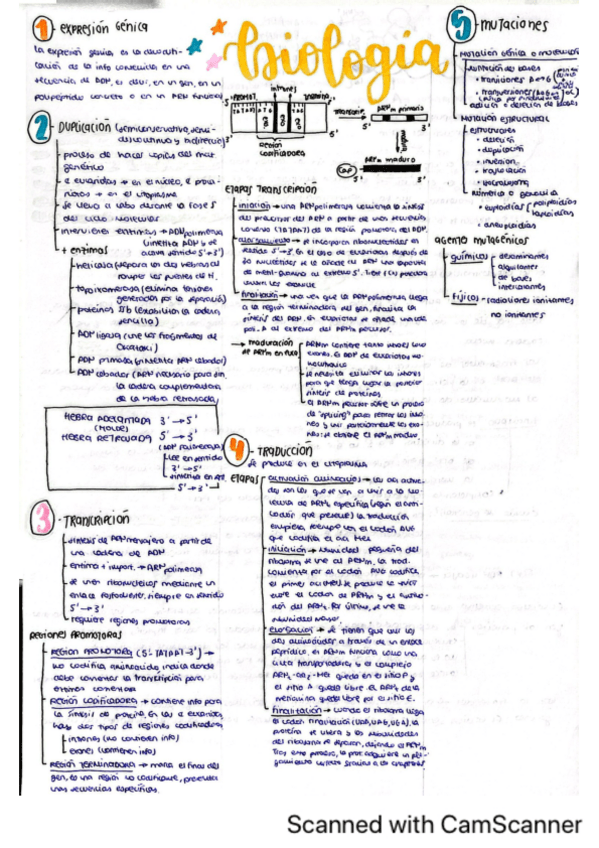 biología
1 - EXPRESIÓN GÉNICA
La expresión génica es la
de la info contenida en una
secuencia de ADN, es decir, en un gen, en un
polipéptido concreto o en un ARN funcional
2 - DUPLICACIÓN (semiconservativa, semi-
discontinua y bidirecció)
proceso de hacer copias del mat.
genético
en eucariotas → en el núcleo,
en el citoplasma
se lleva a cabo durante la fase S
del ciclo
intervienen enzimas → ADN polimerasa
(sintetiza ADN
sentido 5'→3')
+ enzimas
helicasa (separa las dos hebras al
romper los puentes de H.
topoisomerasa (elimina tensiones
generadas por la separació)
proteínas SSB (estabilizan la cadena
sencilla)
ADN ligasa (une los fragmentos de
Okazaki)
ADN primasa (sintetiza ARN cebador)
ADN cebador (ARN necesario para sin.
la cadena complementaria
de la hebra retrasada)
HEBRA ADELANTADA 3' → 5'
(MOLDE)
HEBRA RETRASADA 5' → 3'
(ADN polimerasa)
Lee en sentido
3' → 5'
sintetiza en
5' → 3'
3 - TRANSCRIPCIÓN
síntesis de ADN mensajero a partir de
una cadena de ADN
enzima + import. → ARN polimerasa
se unen ribonucleótidos mediante un
enlace fosfodiéster, siempre en sentido
5' → 3'
requiere regiones promotoras
REGIONES PROMOTORAS
REGIÓN PROMOTORA (5'-TATAAT-3') →
no codifica aminoácido, indica donde
debe comenzar la transcripción para
REGIÓN CODIFICADORA → contiene info para
la síntesis de proteína, en las c. eucariotas
hay dos tipos de regiones codificadoras
intrones (no contienen info)
exones (contienen info)
REGIÓN TERMINADORA → marca el final del
gen, es una región no codificante, presenta
unas secuencias específicas.
intrones
PROMOT.
TERMINA.
3'
5'
REGIÓN
CODIFICADORA
transcrip.
ARNm primario
5'
3'
ARNm maduro
CAP
5'
3'
ETAPAS TRANSCRIPCIÓN
iniciación → una ARN polimerasa comienza la síntesis
del precursor del ARN a partir de una secuencia
(TATAAT) de la región promotora del ADN.
→ se incorporan ribonucleótidos en
sentido 5'→3'. En el caso de eucariotas después de
30 nucleótidos se le añade
de metil-guanina al extremo 5'.
finalización → una vez que la ARN polimerasa llega
a la región terminadora del gen, finaliza la
síntesis del ARN. En eucariotas se añade una cola
poli-A al extremo del ARN precursor.
→ maduración
de ARNm en
ARNm contiene tanto intrones como
exones. El ADN de eucariotas
se necesita eliminar los intrones
para que tenga lugar la posterior
síntesis de proteínas
el ARNm precursor sufre un proceso
de "splicing" para retirar los intro-
nes y unir posteriormente los exo-
nes: se obtiene el ARNm maduro.
4 - TRADUCCIÓN
se produce en el citoplasma
ETAPAS
activación aminoácidos → los aa activa-
dos son los que se van a unir a la mo-
lécula de ARNt específica (según el anti-
codón que presente) la traducción
empieza siempre con el codón AUG
que codifica el aa: Met
iniciación → subunidad pequeña del
ribosoma se une al ARNm, la trad.
comienza por el codón AUG codifica
el primer aa: Met se produce la unión
entre el codón de ARNm y el anticodón
del ARNt. Por último, se une la
subunidad mayor
elongación → se tienen que unir los
dos aminoácidos a través de un enlace
peptídico. el ARNm funciona como una
cinta transportadora y el complejo
ARNt-aa2-Met queda en el sitio P y
el sitio A queda libre. El ARNt de la
metionina queda libre por el sitio E.
finalización → cuando el ribosoma llega
al codón finalización (UAA, UAG, UGA), la
proteína se libera y las subunidades
del ribosoma se separan, dejando el ARNm
Tras este proceso, la prot adquiere un ple-
gamiento correcto gracias a las chaperonas
5 - MUTACIONES
MUTACIÓN GÉNICA O MOLECULAR
sustitución de bases
• transiciones A↔G
• transversiones
adición o deleción de bases
MUTACIÓN ESTRUCTURAL
estructurales
• deleción
• duplicación
• inversión
• translocación
numérica o genómica
• euploidías
• aneuploidías
AGENTES MUTAGÉNICOS
químicos
desaminantes
alquilantes
de bases
intercalantes
físicos → radiaciones ionizantes
no ionizantes
Scanned with CamScanner